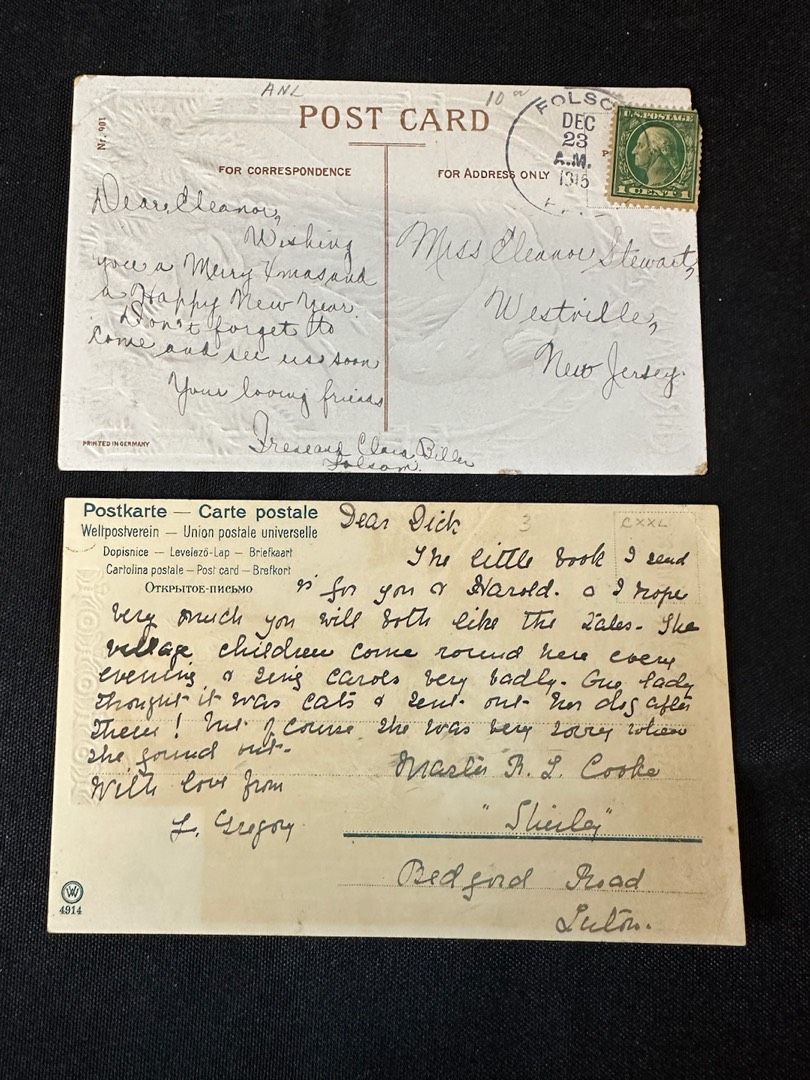 ANL
10
POST CARD
FOLSO
DEC
23
A.M.
1915
U.S. POSTAGE
1 CENT 1
Nr. 901
FOR CORRESPONDENCE
FOR ADDRESS ONLY
Dear Eleanor,
Wishing
you a Merry Xmas and
a Happy New Year.
Don't forget to
come and see us soon
Your loving friends
Irene and Clara Biller
Folsom.
Miss Eleanor Stewart,
Westville,
New Jersey.
PRINTED IN GERMANY
Postkarte — Carte postale
Weltpostverein — Union postale universelle
Dopisnice — Levelező-Lap — Briefkaart
Cartolina postale — Post card — Brefkort
Открытое-письмо
3
CXXL
Dear Dick
The little book I send
is for you & Harold. & I hope
very much you will both like the Tales. The
village children come round here every
evening & sing carols very badly. One lady
thought it was cats & sent out her dog after
them! but of course she was very sorry when
she found out.
With love from
L. Gregory
Master R. L. Cooke
"Shirley"
Bedford Road
Luton.
W
4914